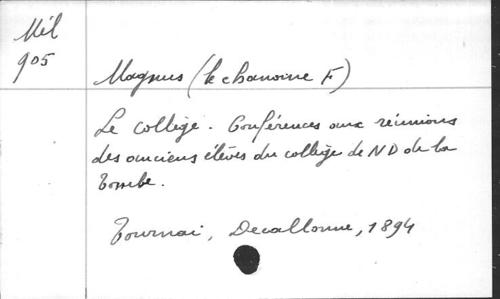 Mél
905
Magnus (le chanoine F)
Le collège. Conférences aux réunions
des anciens élèves du collège de ND de la
Tombe.
Tournai, Decallonne, 1894